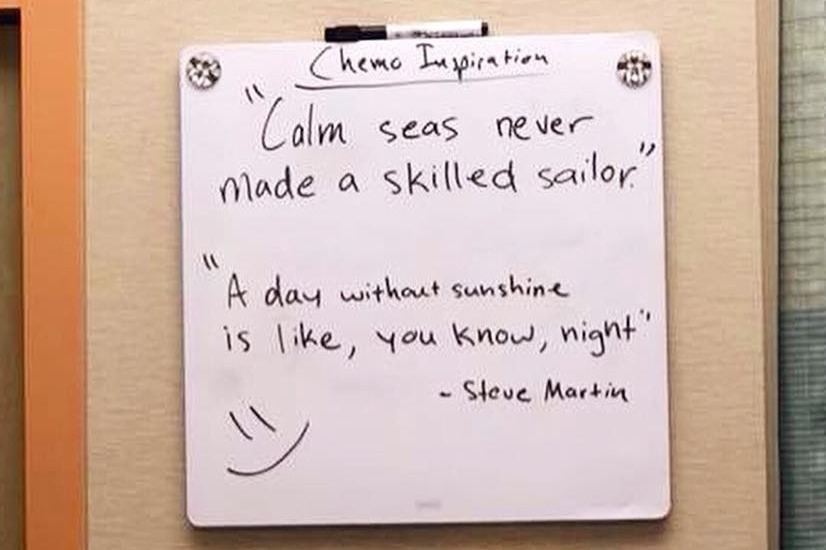 Chemo Inspiration
"Calm seas never
made a skilled sailor."
"A day without sunshine
is like, you know, night"
- Steve Martin